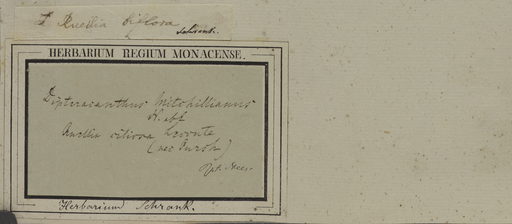 Ruellia biflora
Schrank.
HERBARIUM REGIUM MONACENSE.
Dipteracanthus Mitchillianus
N. ab E
Ruellia ciliosa Leconte
(nec Pursh)
Herbarium Schrank.